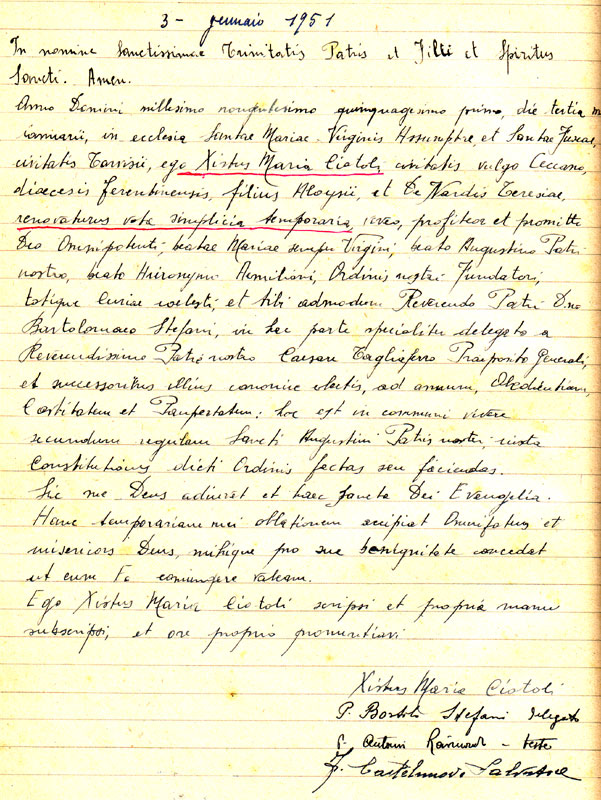 3 - gennaio 1951
In nomine Sanctissimae Trinitatis Patris et Filii et Spiritus
Sancti. Amen.
Anno Domini millesimo nongentesimo quinquagesimo primo, die tertia m
ianuarii, in ecclesia Santae Mariae Virginis Assumptae, et Sanctae Fuscae,
civitatis Tarvisii, ego Xistus Maria Ciotoli, civitatis vulgo Ceccano,
dioecesis Ferentinensis, filius Aloysii, et De Nardis Teresiae,
renovaturus vota simplicia temporaria, voveo, profiteor et promitto
Deo Omnipotenti, beatae Mariae semper Virgini, beato Augustino Patri
nostro, beato Hieronymo Aemiliani, Ordinis nostri Fundatori,
totique Curiae coelesti, et tibi admodum Reverendo Patri D.no
Bartolomaeo Stefani, in hac parte specialiter delegato a
Reverendissimo Patre nostro Caesare Tagliaferro Praeposito Generali,
et successoribus illius canonice electis, ad annum, Obedientiam,
Castitatem et Paupertatem: hoc est in communi vivere
secundum regulam Sancti Augustini Patris nostri, iuxta
Constitutiones dicti Ordinis factas seu faciendas.
Sic me Deus adiuvet et haec Sancta Dei Evangelia.
Hanc temporariam mei oblationem accipiat Omnipotens et
misericors Deus, mihique pro sua benignitate concedat
ut cum Eo coniungere valeam.
Ego Xistus Maria Ciotoli scripsi et propria manu
subscripsi, et ore proprio pronuntiavi
Xistus Maria Ciotoli
P. Bortolo Stefani delegato
P. Antonio Raimondi - teste
Salvatore